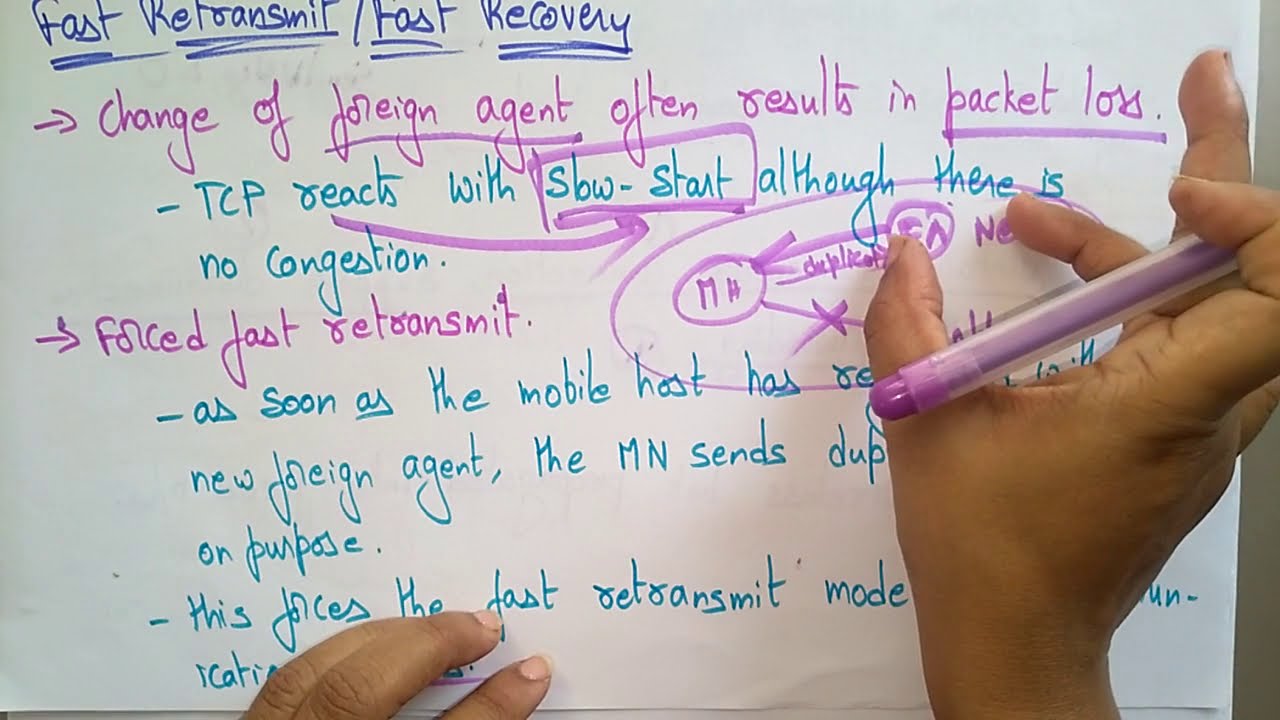 Fast Retransmit / Fast Recovery
→ Change of foreign agent often results in packet loss.
- TCP reacts with Slow-Start although there is
no congestion.
FA Ne
duplicat
MH
→ Forced fast retransmit.
- as soon as the mobile host has re
new foreign agent, the MN sends dup
on purpose.
- this forces the fast retransmit mode un-
icatio